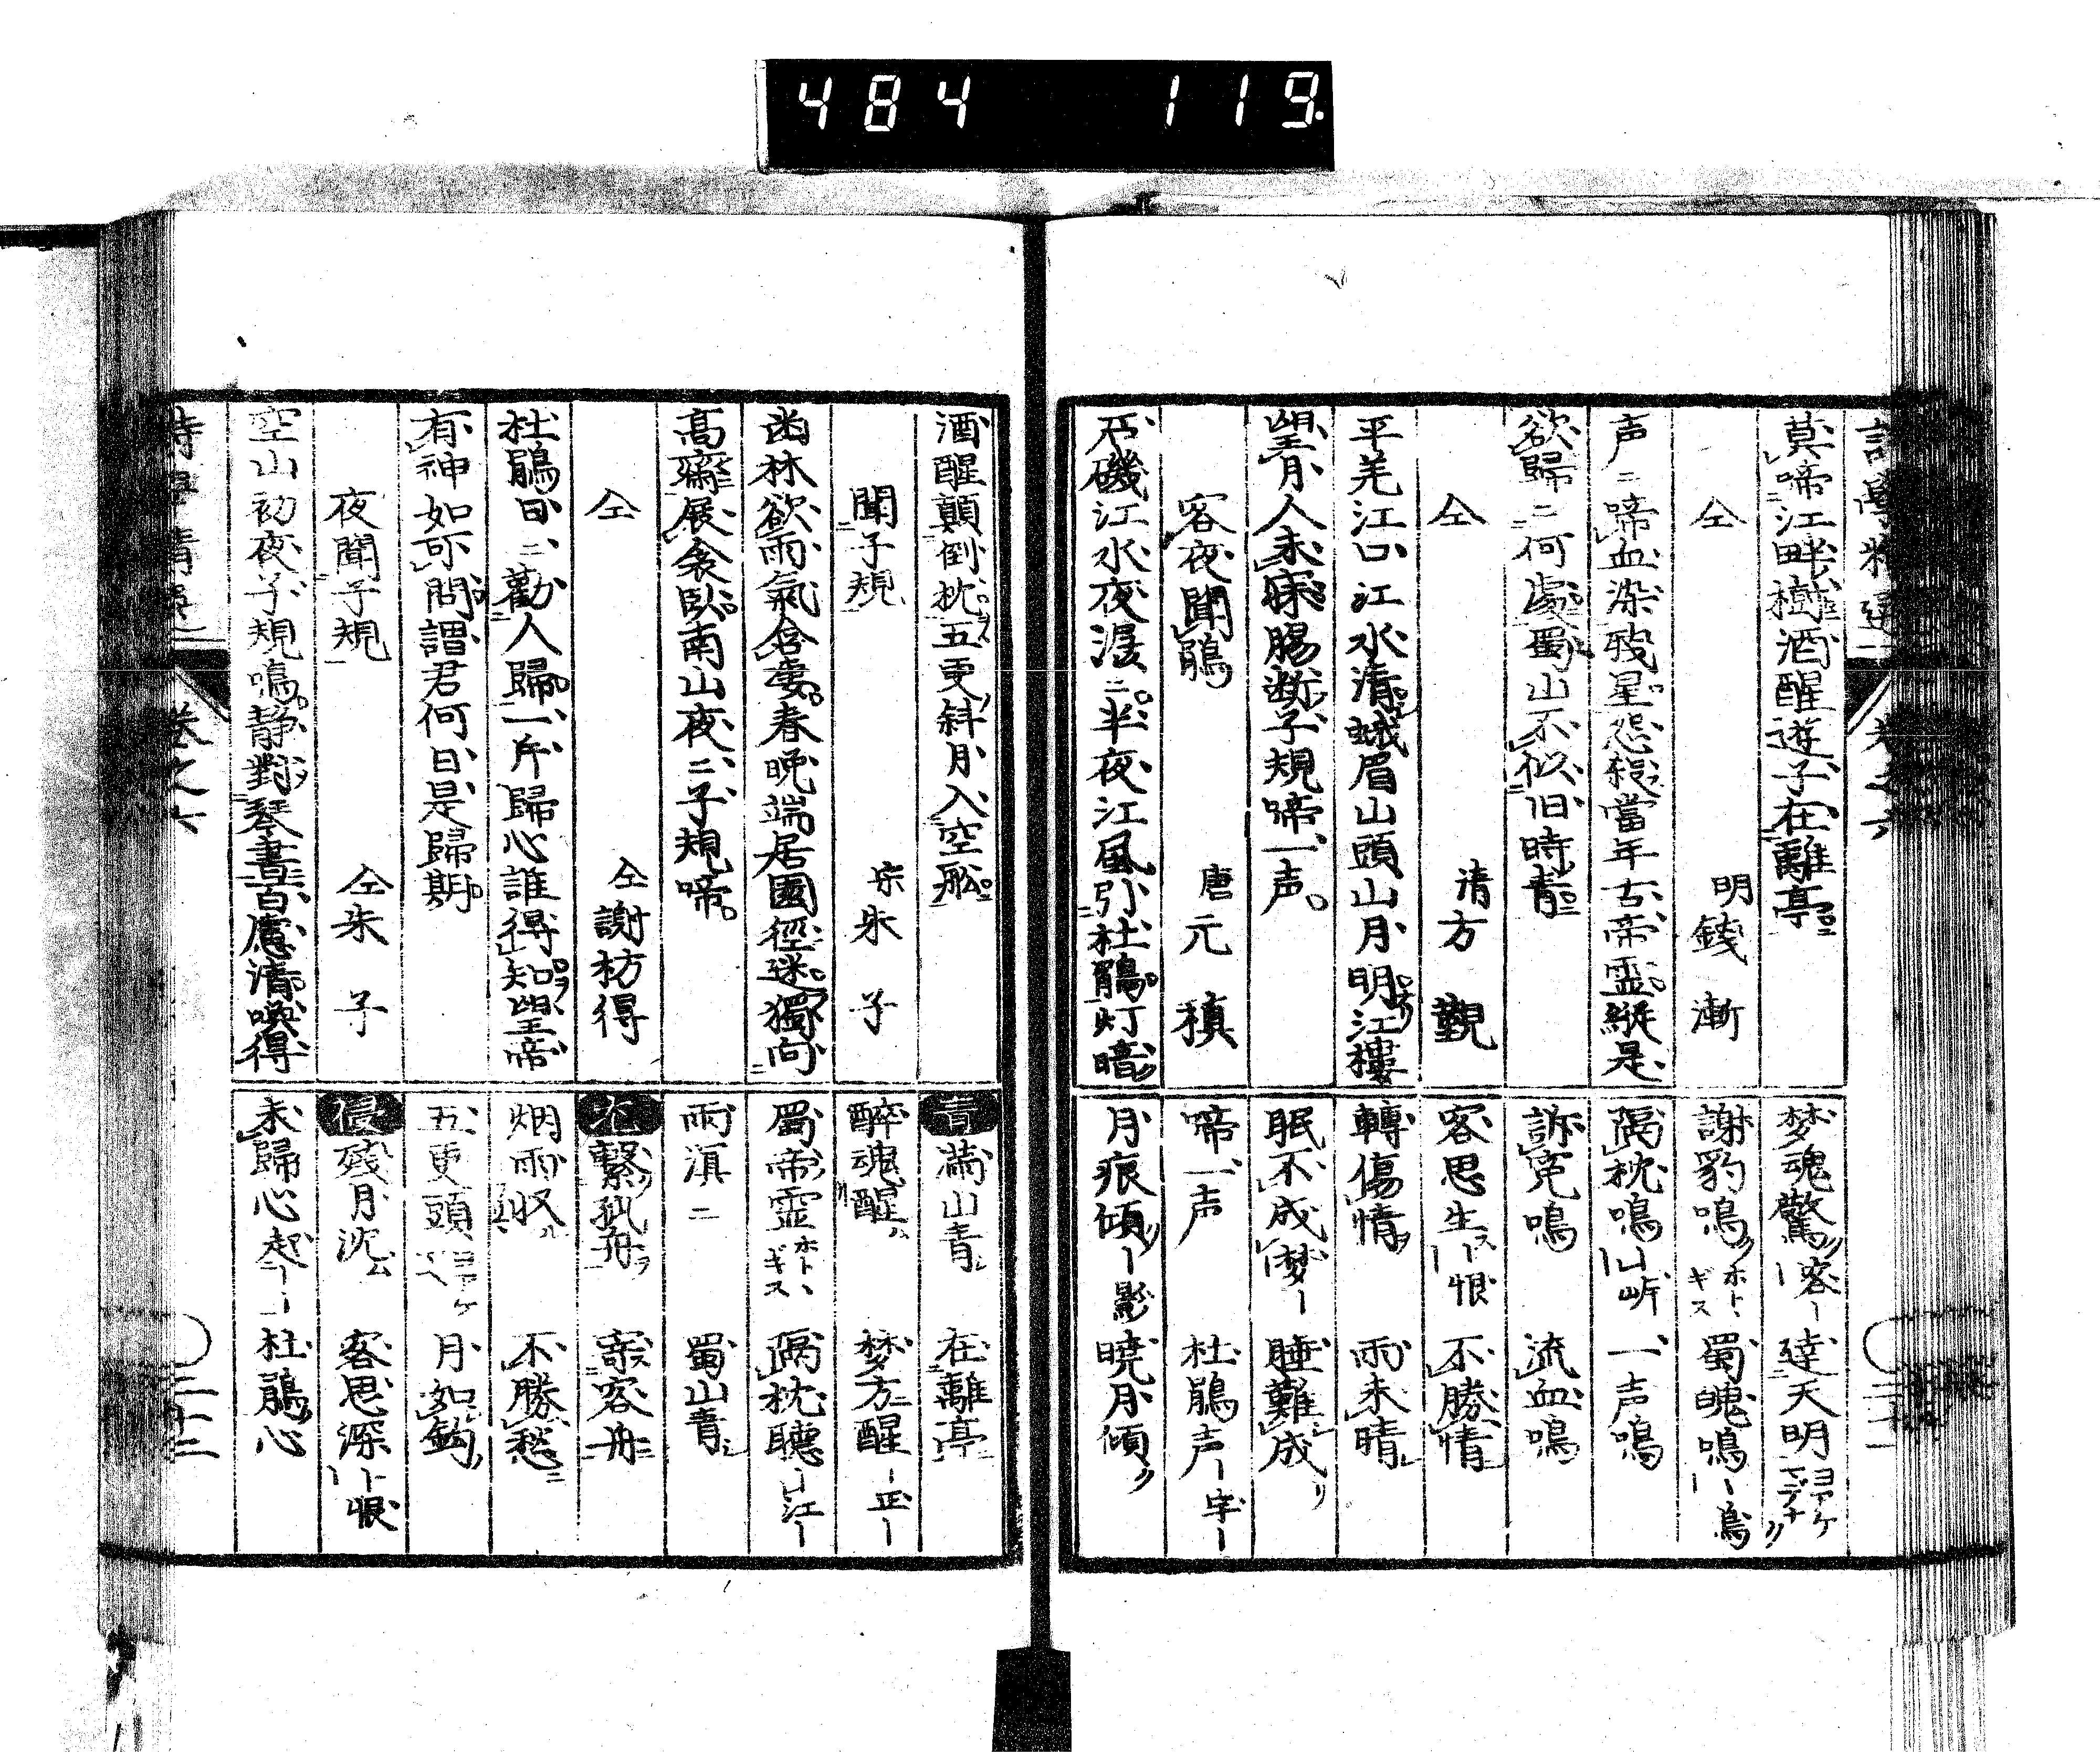 484 119
莫啼江畔樹酒醒遊子在離亭
仝 明錢漸
声〻啼血染残星怨殺當年古帝霊縦是
欲歸〻何處蜀山不似旧時青
仝 清方觀
平羌江口江水清蛾眉山頭山月明江樓
望月人未寐腸断子規啼一声
客夜聞鵑 唐元稹
石磯江水夜漫〻半夜江風引杜鵑灯暗
梦魂驚 客 達天明
謝豹鳴 ホトヽギス 蜀魄鳴 鳥
隔枕鳴 一声鳴
訴冤鳴 流血鳴
客思生 恨 不勝情
轉傷情 雨未晴
眠不成 梦 睡難成
啼一声 杜鵑声 宇
月痕傾 影 暁月傾
酒醒顛倒枕五更斜月入空舩
聞子規 宋朱子
幽林欲雨氣含凄春晩端居園徑迷獨向
高齋展衾臥南山夜〻子規啼
仝 仝謝枋得
杜鵑日〻勸人歸一片歸心誰得知望帝
有神如可問謂君何日是歸期
夜聞子規 仝朱子
空山初夜子規鳴静對琴書百慮清喚得
青 満山青 在離亭
醉魂醒 梦方醒 正
蜀帝霊 ホトヽギス 隔枕聽 江
雨滇〻 蜀山青
尤 繋孤舟 寄客舟
烟雨収 不勝愁
五更頭 ヨアケ 月如鈎
侵 残月沈 客思深 恨
未歸心起 杜鵑心
卷之六
二十二